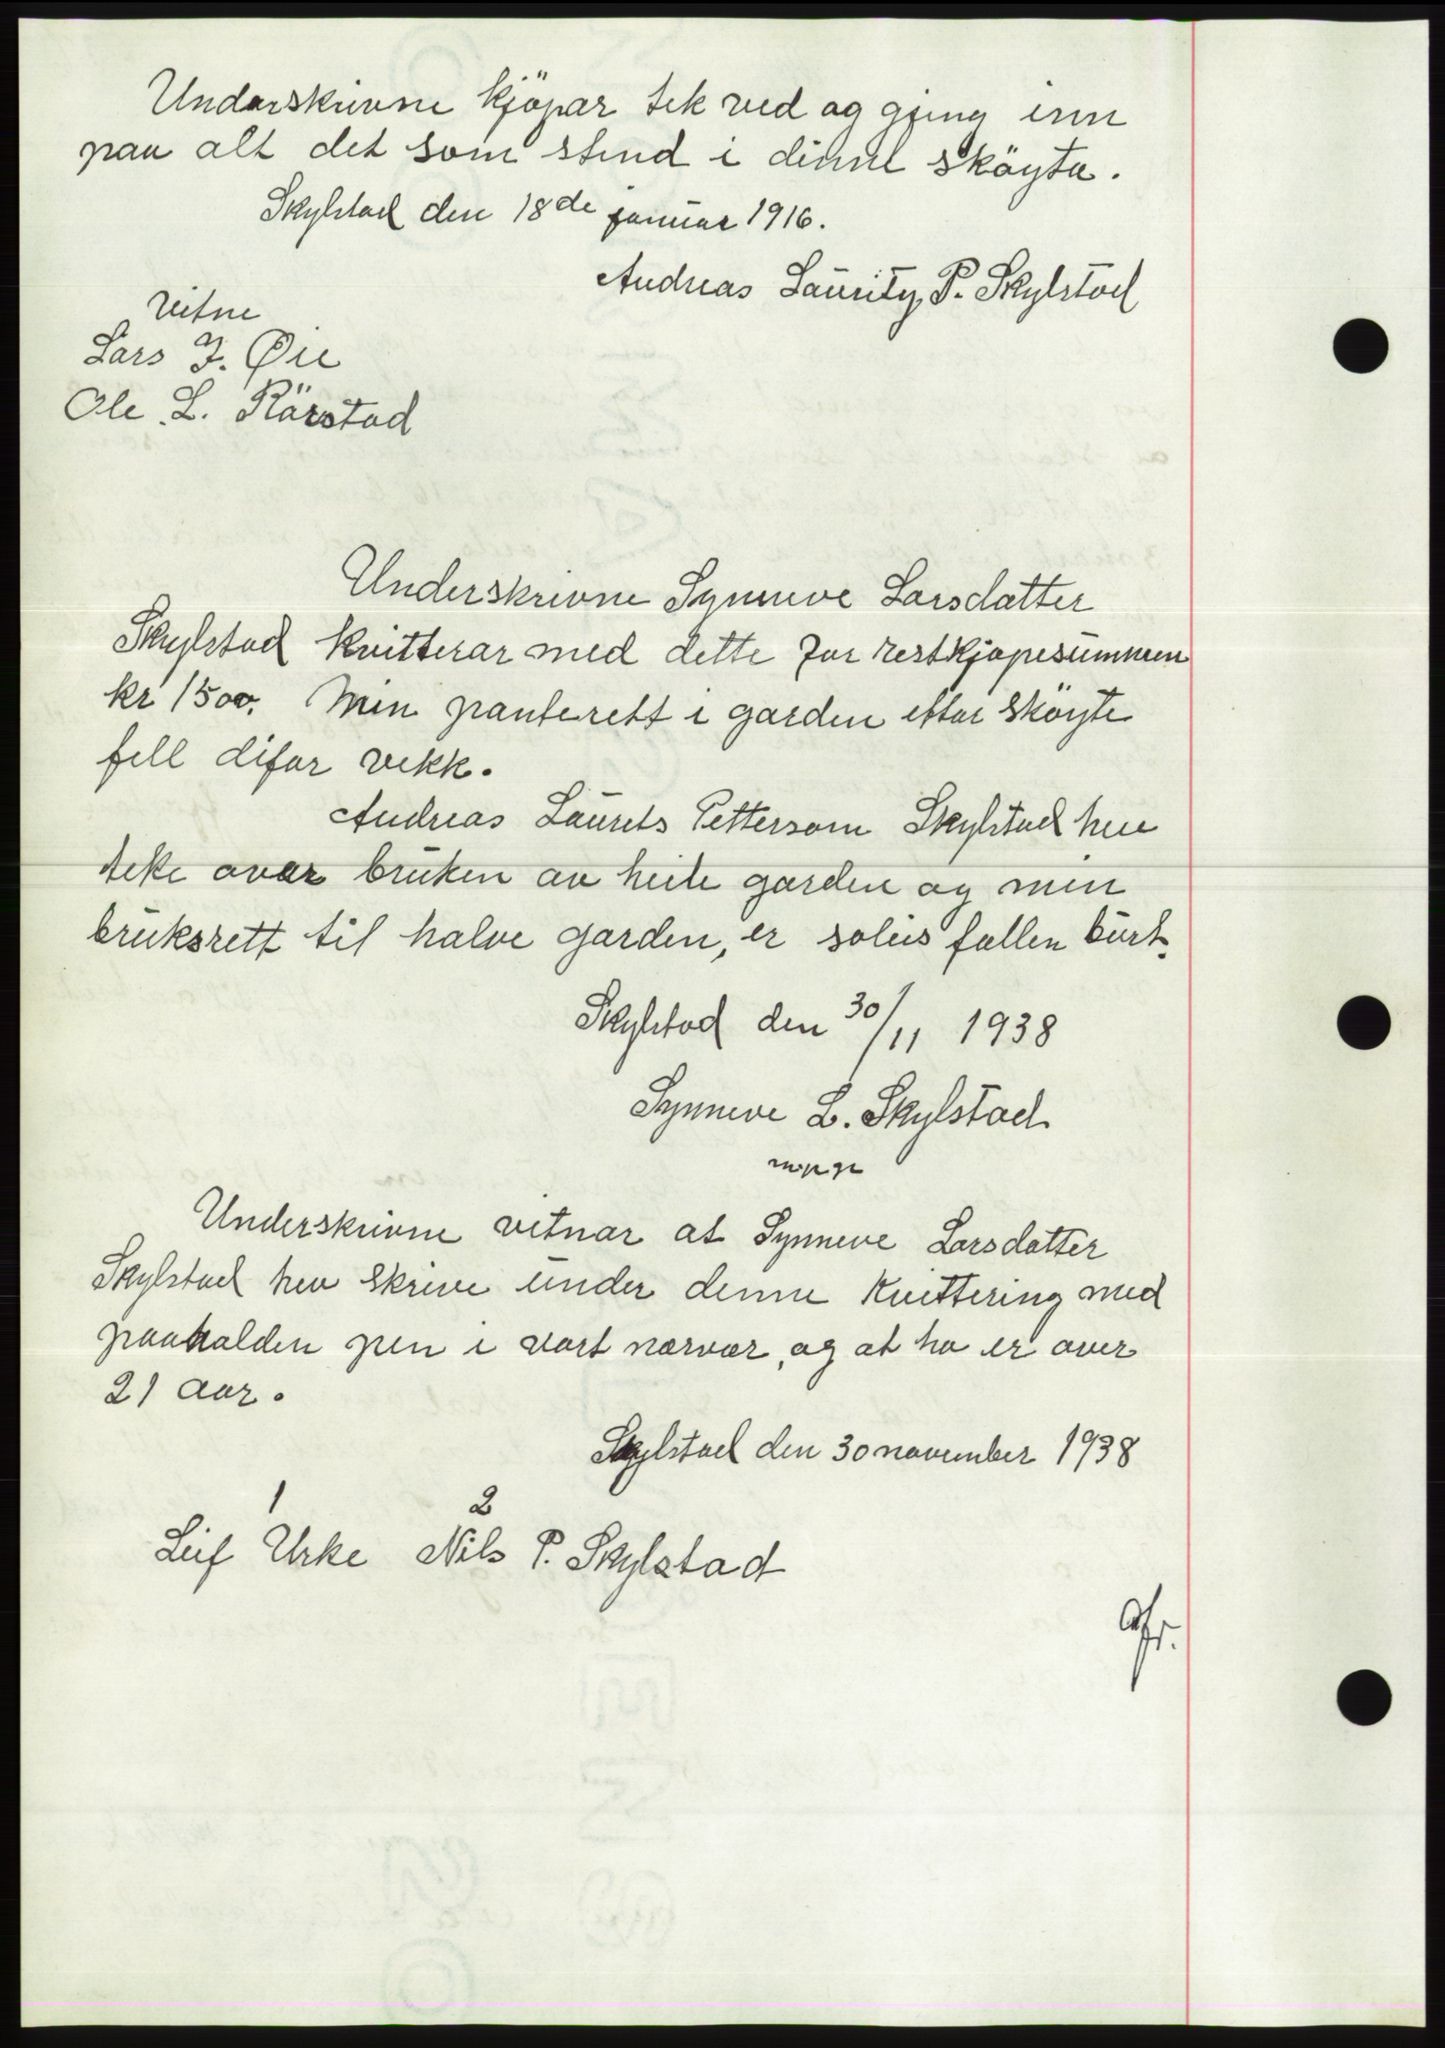 Underskrivne kjöpar tek ved og gjeng inn
paa alt det som stend i dinne sköyta.
Skylstad den 18de januar 1916.
Andreas Lauritz P. Skylstad
Vitne
Lars J. Øie
Ole L. Rärstad
Underskrivne Synneve Larsdatter
Skylstad kvitterar med dette for restkjøpesummen
kr 1500. Min panterett i garden etter sköyte
fell difor vekk.
Andreas Laurets Pettersom Skylstad hev
teke over bruken av heile garden og min
bruksrett til halve garden, er soleis fallen burt.
Skylstad den 30/11 1938
Synneve L. Skylstad
mpp
Underskrivne vitnar at Synneve Larsdatter
Skylstad hev skrive under denne kvittering med
paahalden pen i vort nærvær, og at ho er over
21 aar.
Skylstad den 30 november 1938
1 2
Leif Urke Nils P. Skylstad